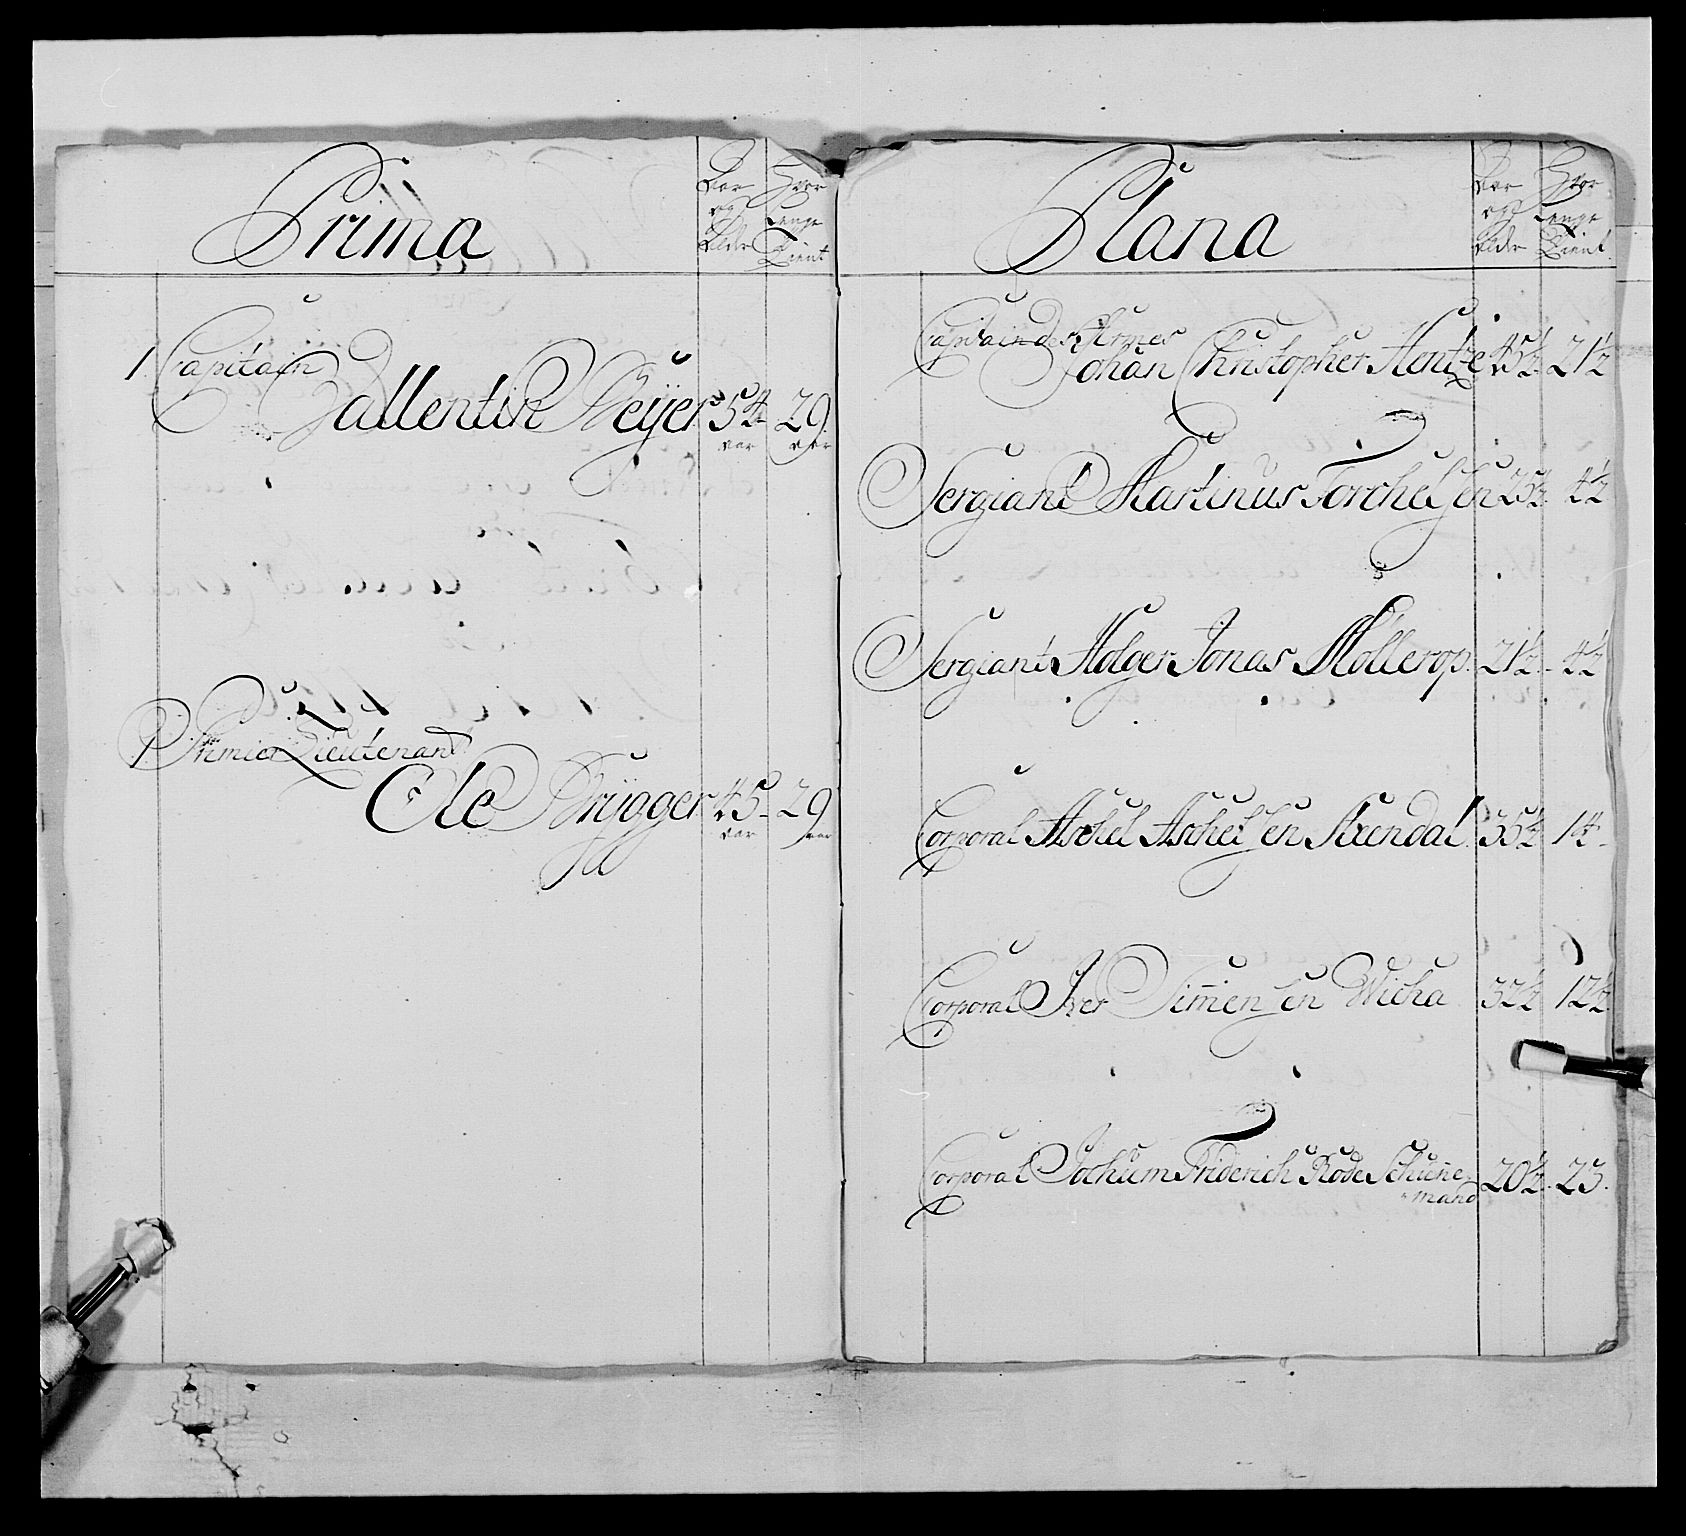 Prima
Hvor Lenge Tient
1. Capitain
Vallentin Beÿer 54 29
aar aar
Premier Lieutenant
Ole Brÿgger 45 - 29
aar aar
Plana
Hvor Lenge Tient
Capitain des Armes
Johan Christopher Hentze 45½ 21½
Sergiant Martinus Torchelsen 25½ 4½
Sergiant Holger Jonas Möllerop. 21½ - 4½
Corporal Aschel Aschelsen Auendal 35½ 14 -
Corporal Iver Simensen Wicha 32½ 12½
Corporal Jochum Friderich Rode Schüne
mand 20½ - 23.